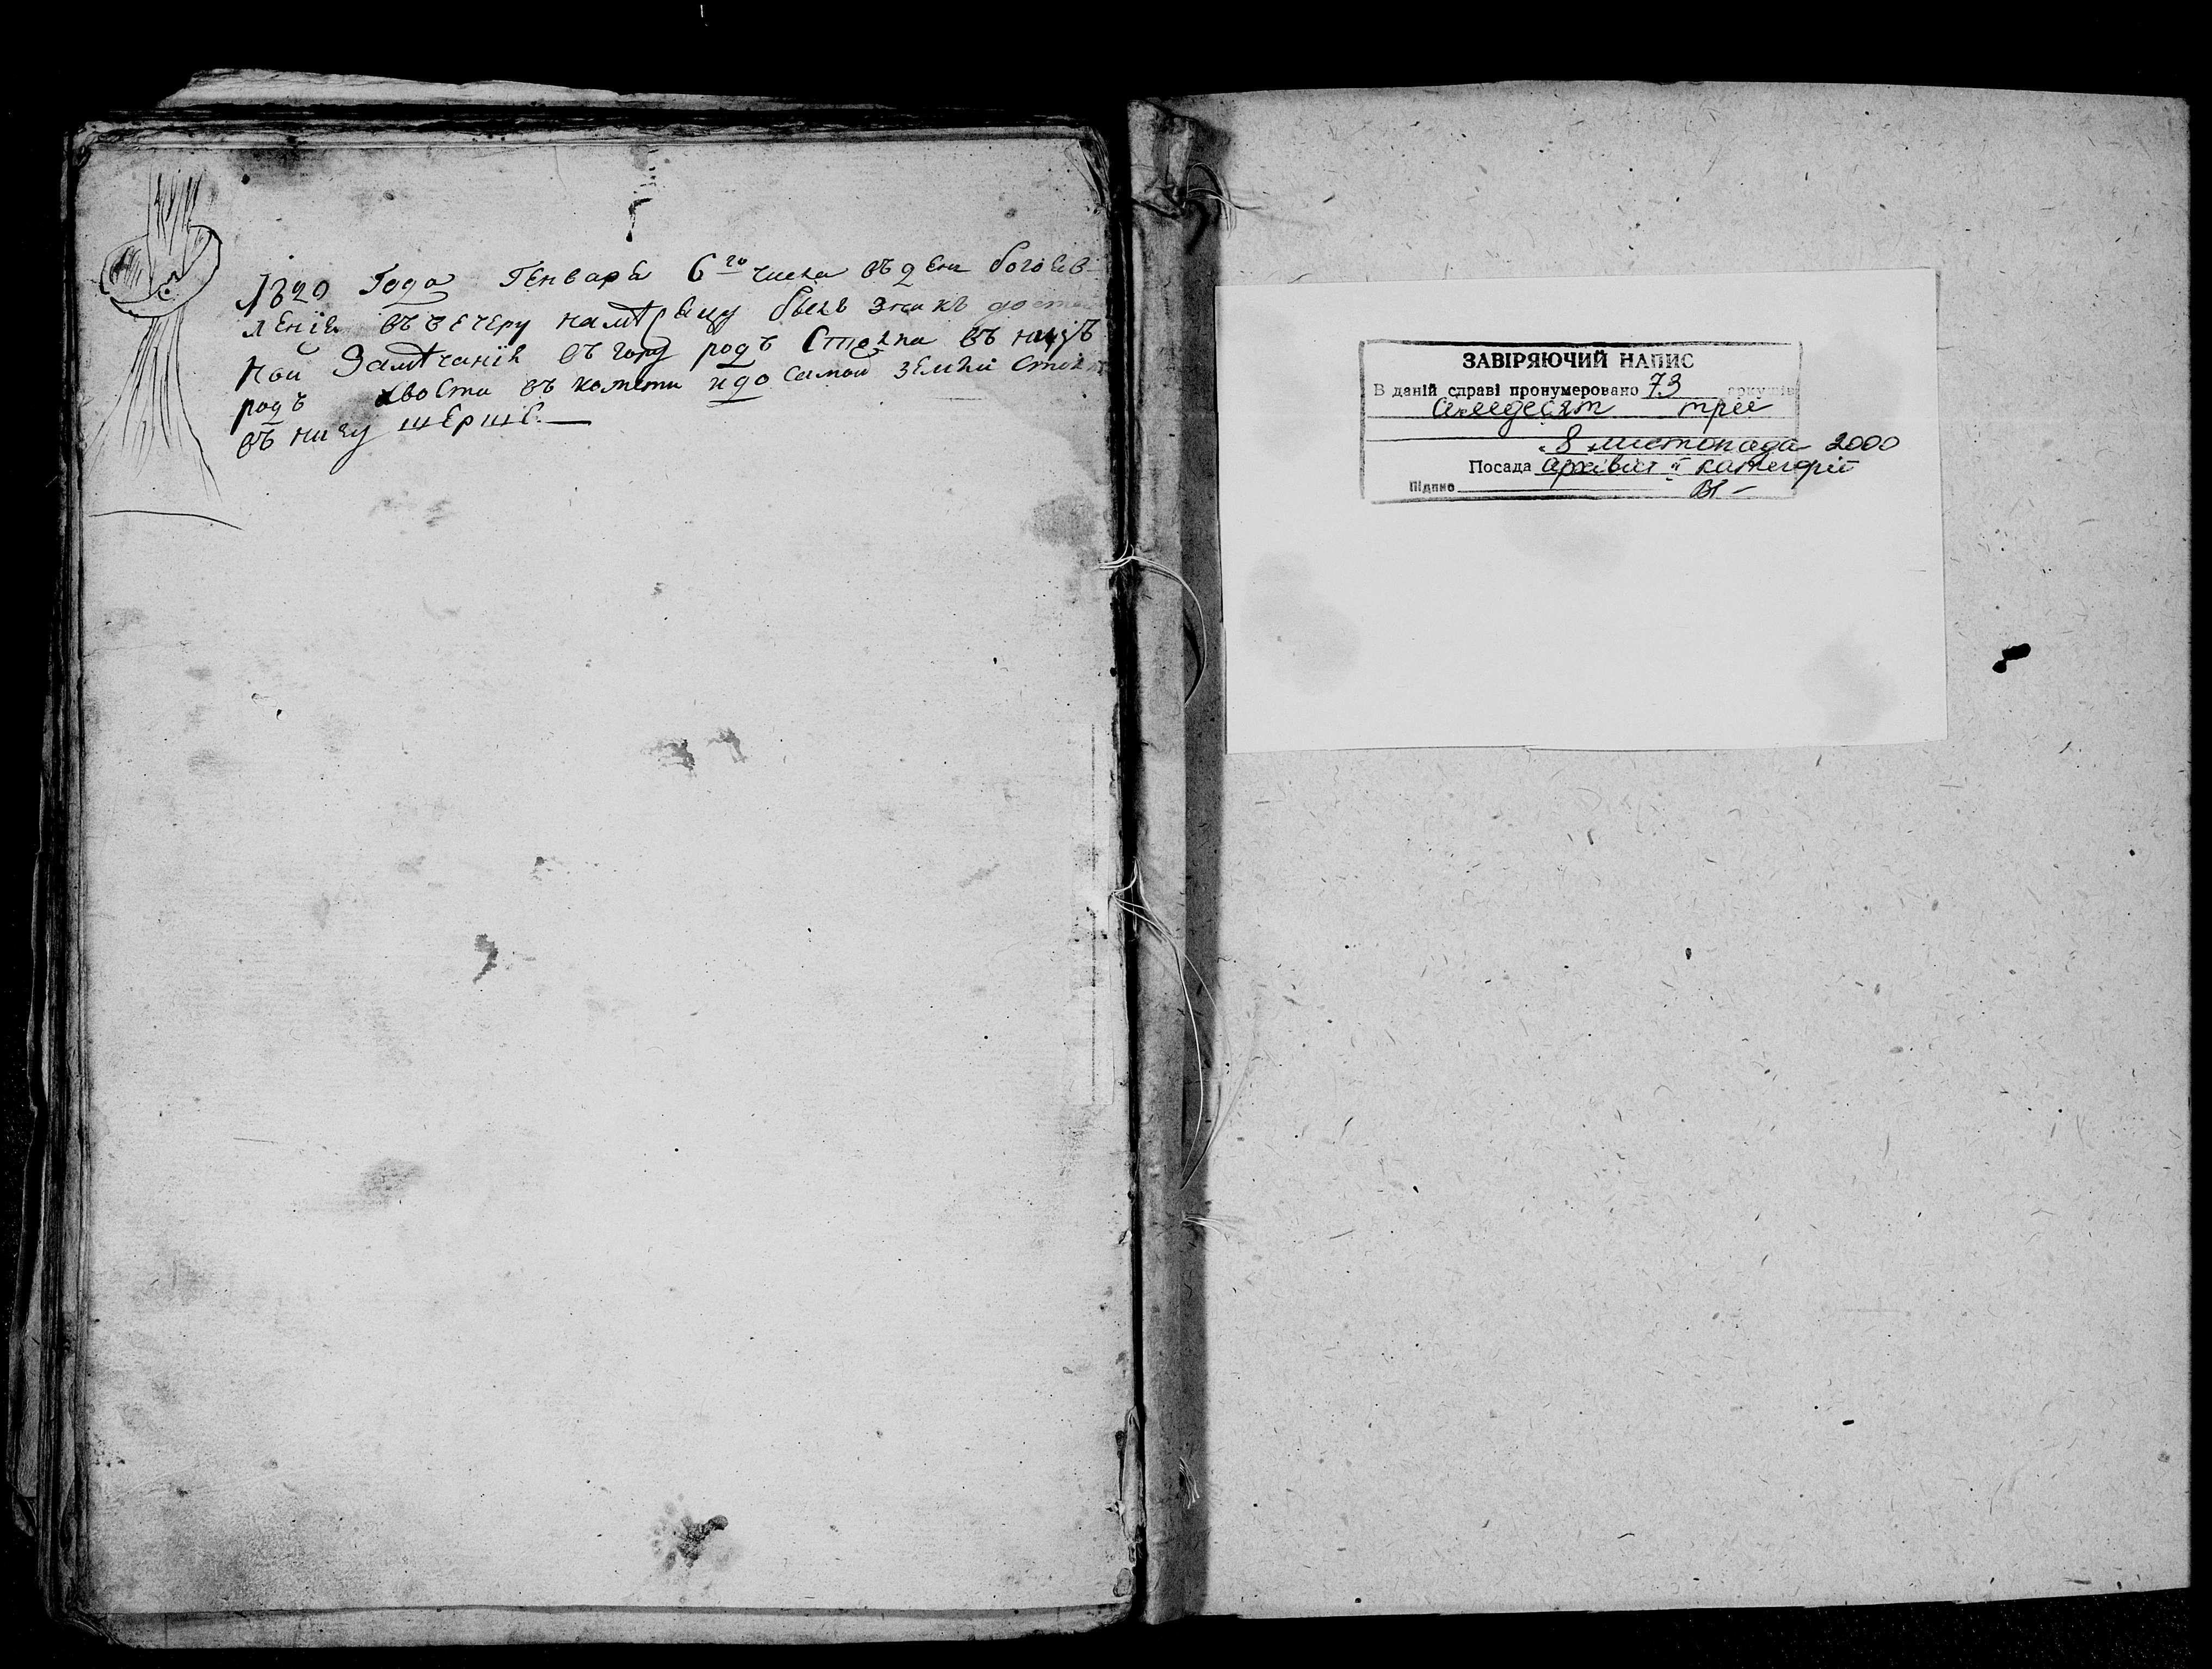 1829 Года Генваря 6го числа въ ден богояв-
ленія въ вечеру намѣсяцу былъ знакъ досто
ной Замѣчанія въ гору родъ Столпа въ низъ
родъ хвоста въ комети идо самой земли
въ низу ширше.—
ЗАВІРЯЮЧИЙ НАПИС
В даній справі пронумеровано 73 аркушів
сімдесят три
8 листопада 2000
Посада архівіст ІІ категорії
Підпис